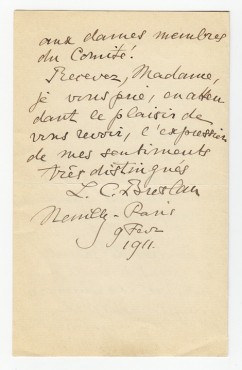 aux dames membres
du Comité.
Recevez, Madame,
je vous prie, en atten
dant le plaisir de
vous revoir, l'expression
de mes sentiments
très distingués
L. C. Breslau
Neuilly - Paris
9 Fevr
1911.